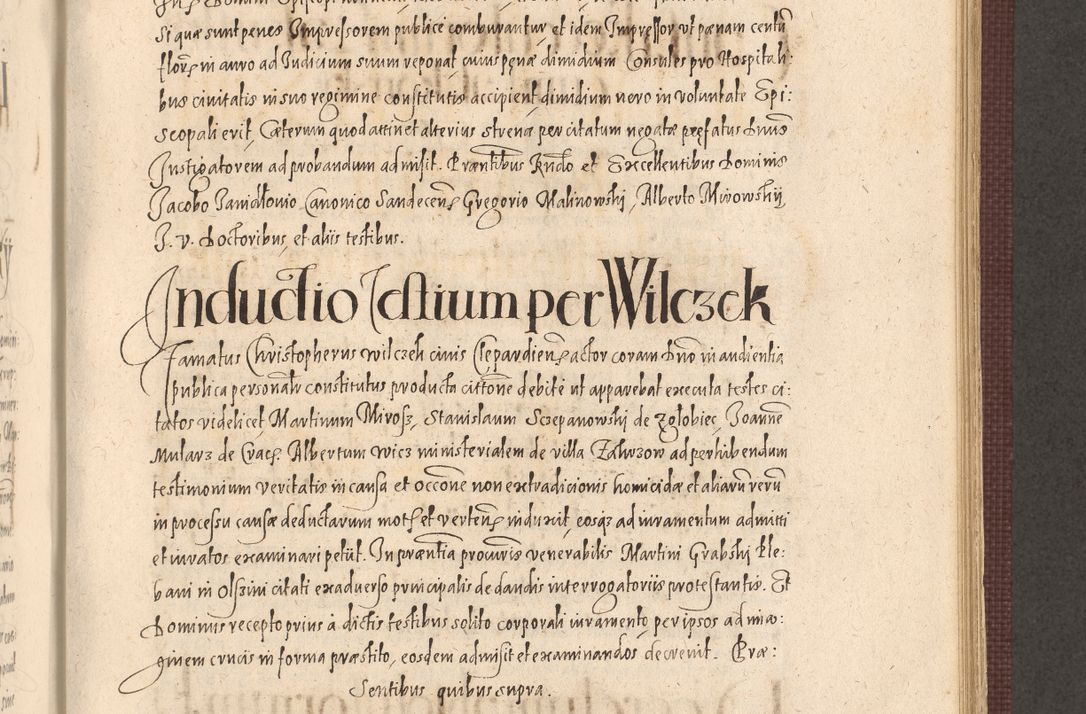 si quæ sunt penes Impressorem publicè comburantur, et idem Impressor ut pænam centũ
floreꝝ in auro ad Iudicium suum reponat, cuius pęnæ dimidium Consules pro Hospitali:
bus civitatis in suo regimine constitutis accipient, dimidium vero in voluntate Epi:
scopali erit. Cæterum quod attinet alterius strenæ per citatum negatæ pręfatus Dnus
Instigatorem ad probandum admisit. Præntibus Rndo et Excellentibus Dominis
Jacobo Janidłouio Canonico Sandecenꝝ Gregorio Malinowski, Alberto Mirowskÿ
J. v. Doctoribus, et aliis testibus.
Inductio Testium per Wilczek
Famatus Christopherus Wilczek civis Clepardienꝝ actor coram Dno in audientia
publica personalr constitutus producta cittõne debitè ut apparebat executa testes ci:
tatos videlicet Martinum Mirosz, Stanislaum Sczepanowski de Zgłobiec, Joannẽ
Mularz de Cracꝝ Albertum Wicz ministerialem de villa Zakrzow ad perhibendum
testimonium veritatis in causa et occõne non extradicionis homicidæ et aliarũ rerũ
in processu causæ deductarum motꝝ et vertenꝝ induxit, eosqꝫ ad iuramentum admitti
et iuratos examinari petiit. In præntia procuris venerabilis Martini Grabski Ple:
bani in Olszini citati ex adverso principalis de dandis interrogatoriis protestantis. Et
Dominus recepto prius à dictis testibus solito corporali iuramento, per ipsos ad ima:
ginem crucis in forma præstito, eosdem admisit et examinandos decrevit. Præ:
sentibus quibus supra.